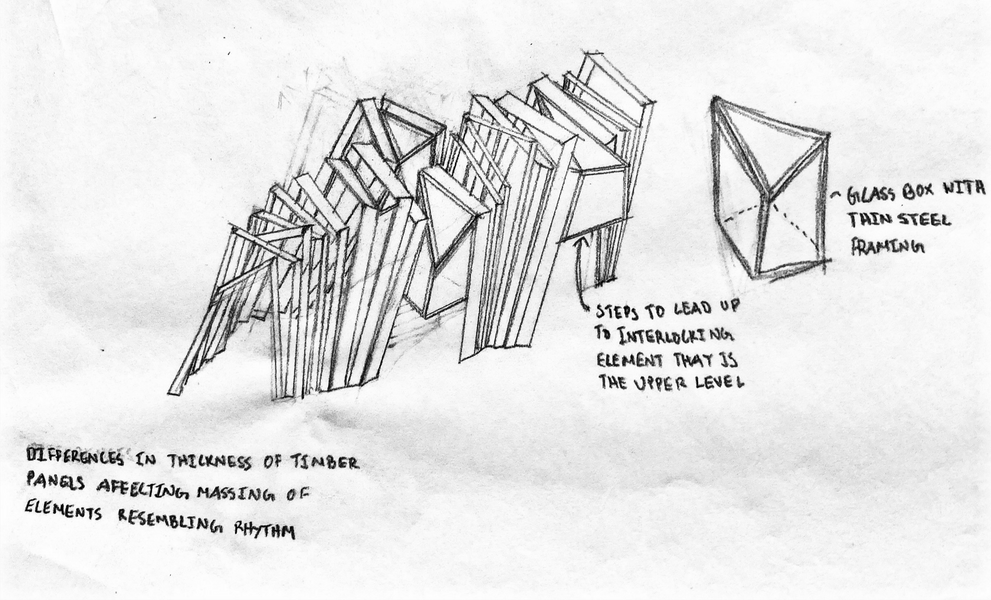 GLASS BOX WITH
THIN STEEL
FRAMING
STEPS TO LEAD UP
TO INTERLOCKING
ELEMENT THAT IS
THE UPPER LEVEL
DIFFERENCES IN THICKNESS OF TIMBER
PANELS AFEELTING MASSING OF
ELEMENTS RESEMBLING RHYTHM